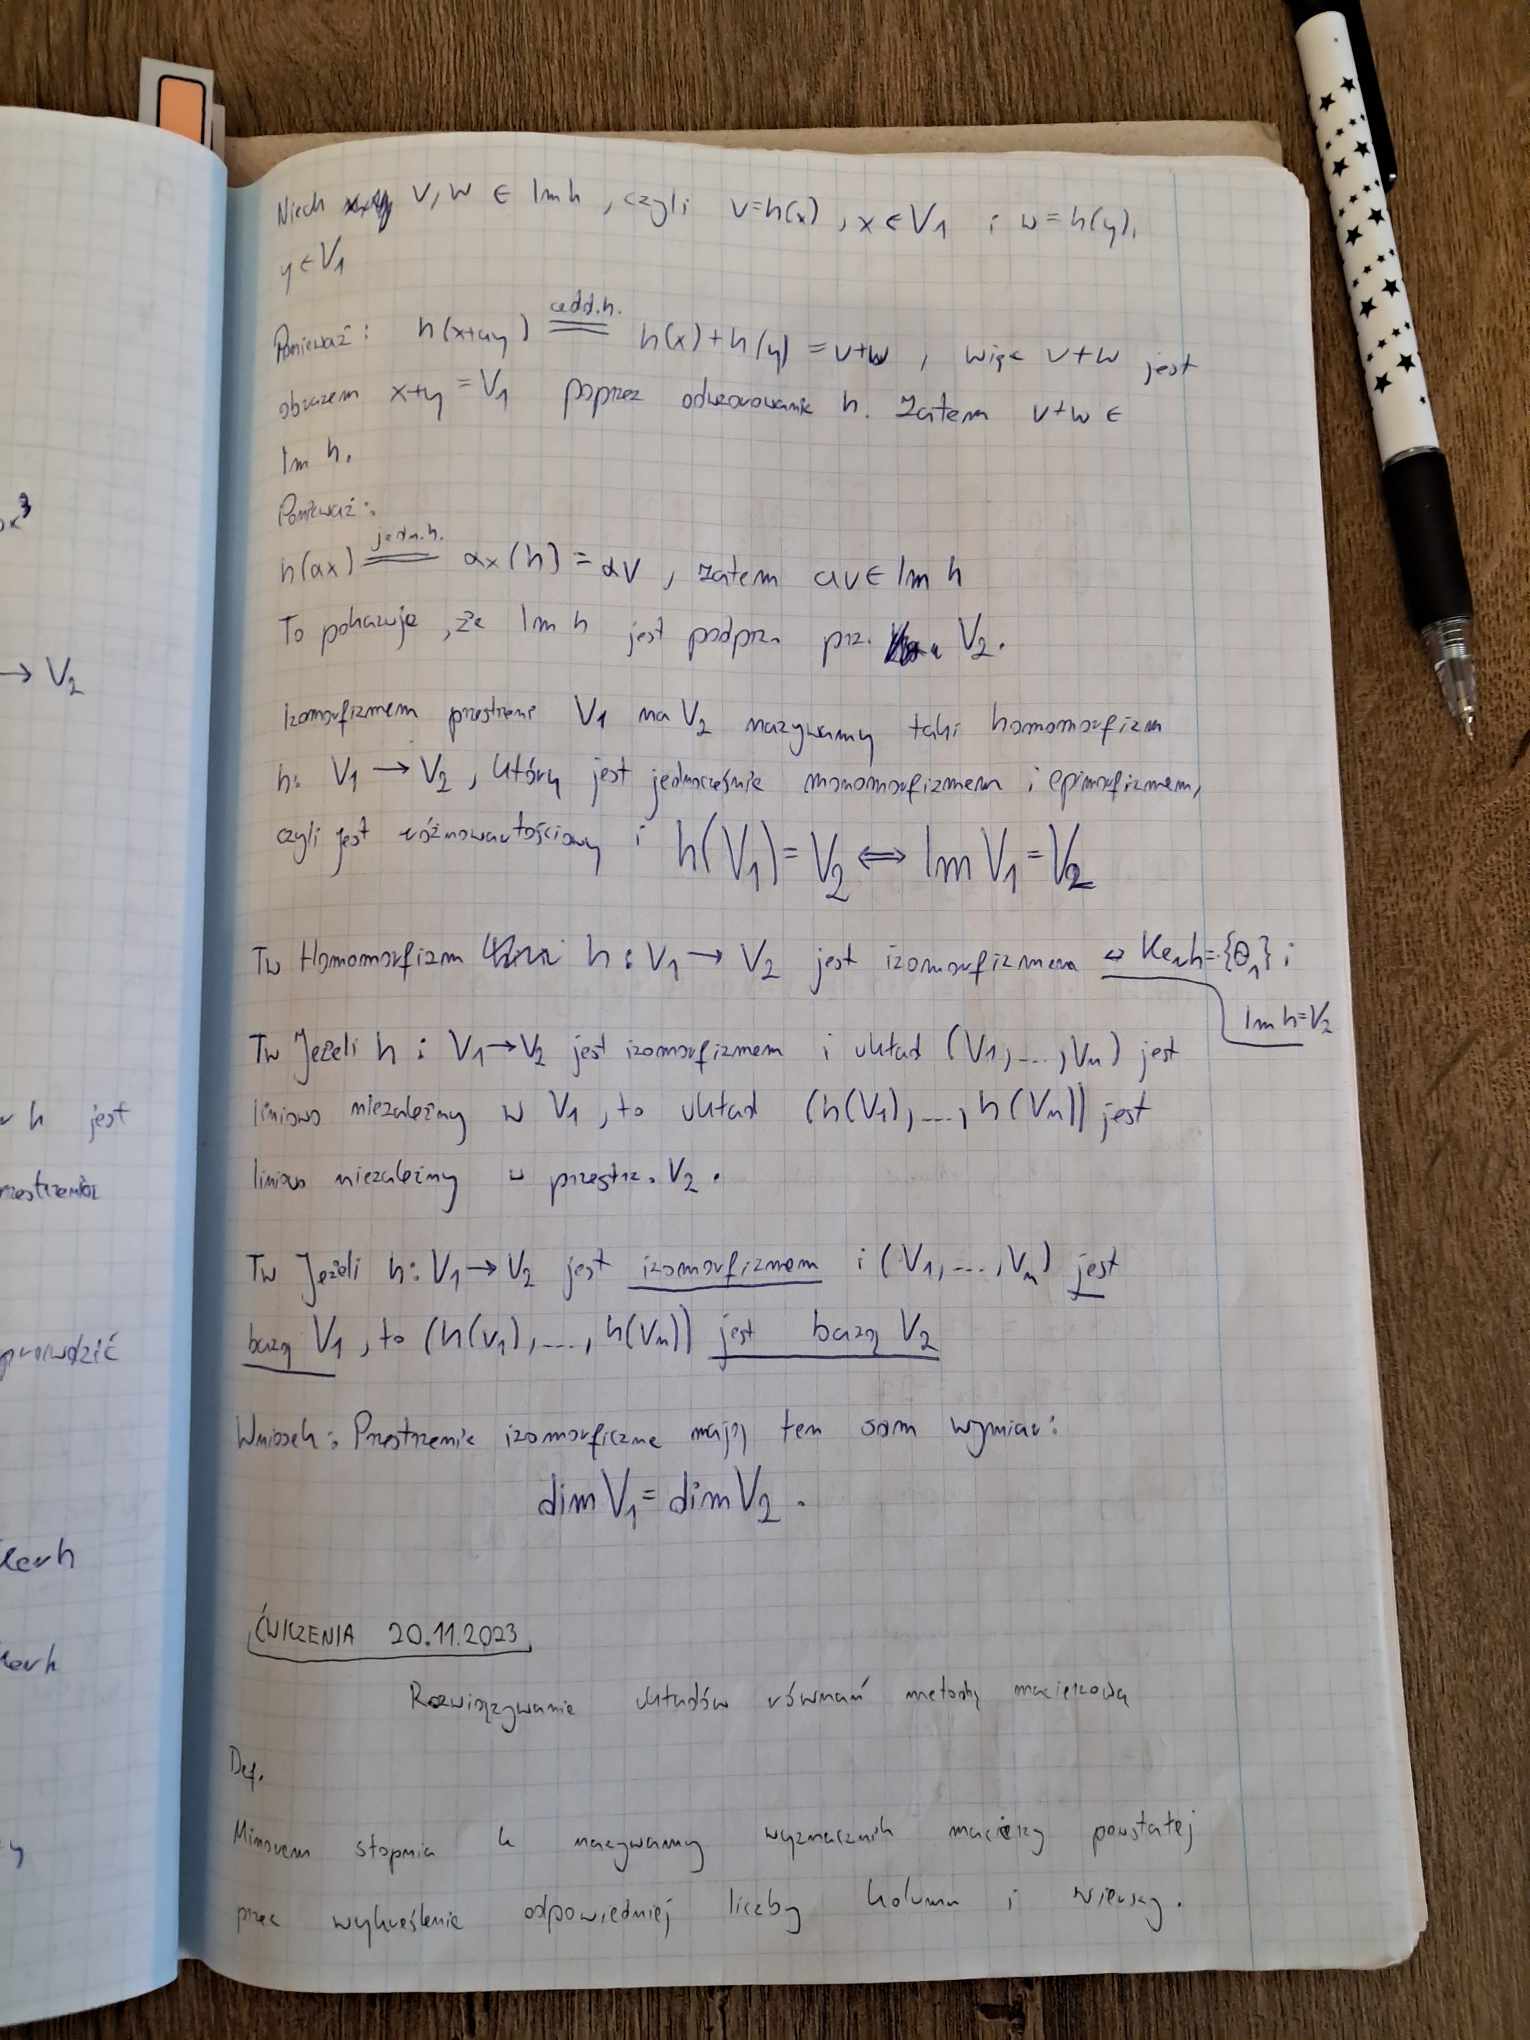 Niech v, w ∈ Im h, czyli v=h(x), x ∈ V₁ i w=h(y),
y ∈ V₁
Ponieważ: h(x+y) =(add.h.) h(x)+h(y)=v+w, więc v+w jest
obrazem x+y = V₁ poprzez odwzorowanie h. Zatem v+w ∈
Im h.
Ponieważ:
h(αx) =(jedn.h.) αx(h) = αv, zatem αv ∈ Im h
To pokazuje, że Im h jest podprz. prz. V₂.
Izomorfizmem przestrzeni V₁ na V₂ nazywamy taki homomorfizm
h: V₁ → V₂, który jest jednocześnie monomorfizmem i epimorfizmem,
czyli jest różnowartościowy i h(V₁)=V₂ ⇔ Im V₁=V₂
Tw Homomorfizm h: V₁ → V₂ jest izomorfizmem ⇔ Ker h={Θ₁} i
Im h=V₂
Tw Jeżeli h: V₁→V₂ jest izomorfizmem i układ (V₁,...,Vₙ) jest
liniowo niezależny w V₁, to układ (h(V₁),..., h(Vₙ)) jest
liniowo niezależny w przestrz. V₂.
Tw Jeżeli h: V₁→V₂ jest izomorfizmem i (V₁,...,Vₙ) jest
bazą V₁, to (h(v₁),..., h(Vₙ)) jest bazą V₂
Wniosek: Przestrzenie izomorficzne mają ten sam wymiar:
dim V₁ = dim V₂.
ĆWICZENIA 20.11.2023
Rozwiązywanie układów równań metodą macierzową
Def.
Minorem stopnia k nazywamy wyznacznik macierzy powstałej
przez wykreślenie odpowiedniej liczby kolumn i wierszy.
x³
→ V₂
h jest
prowadzić
Ker h
y